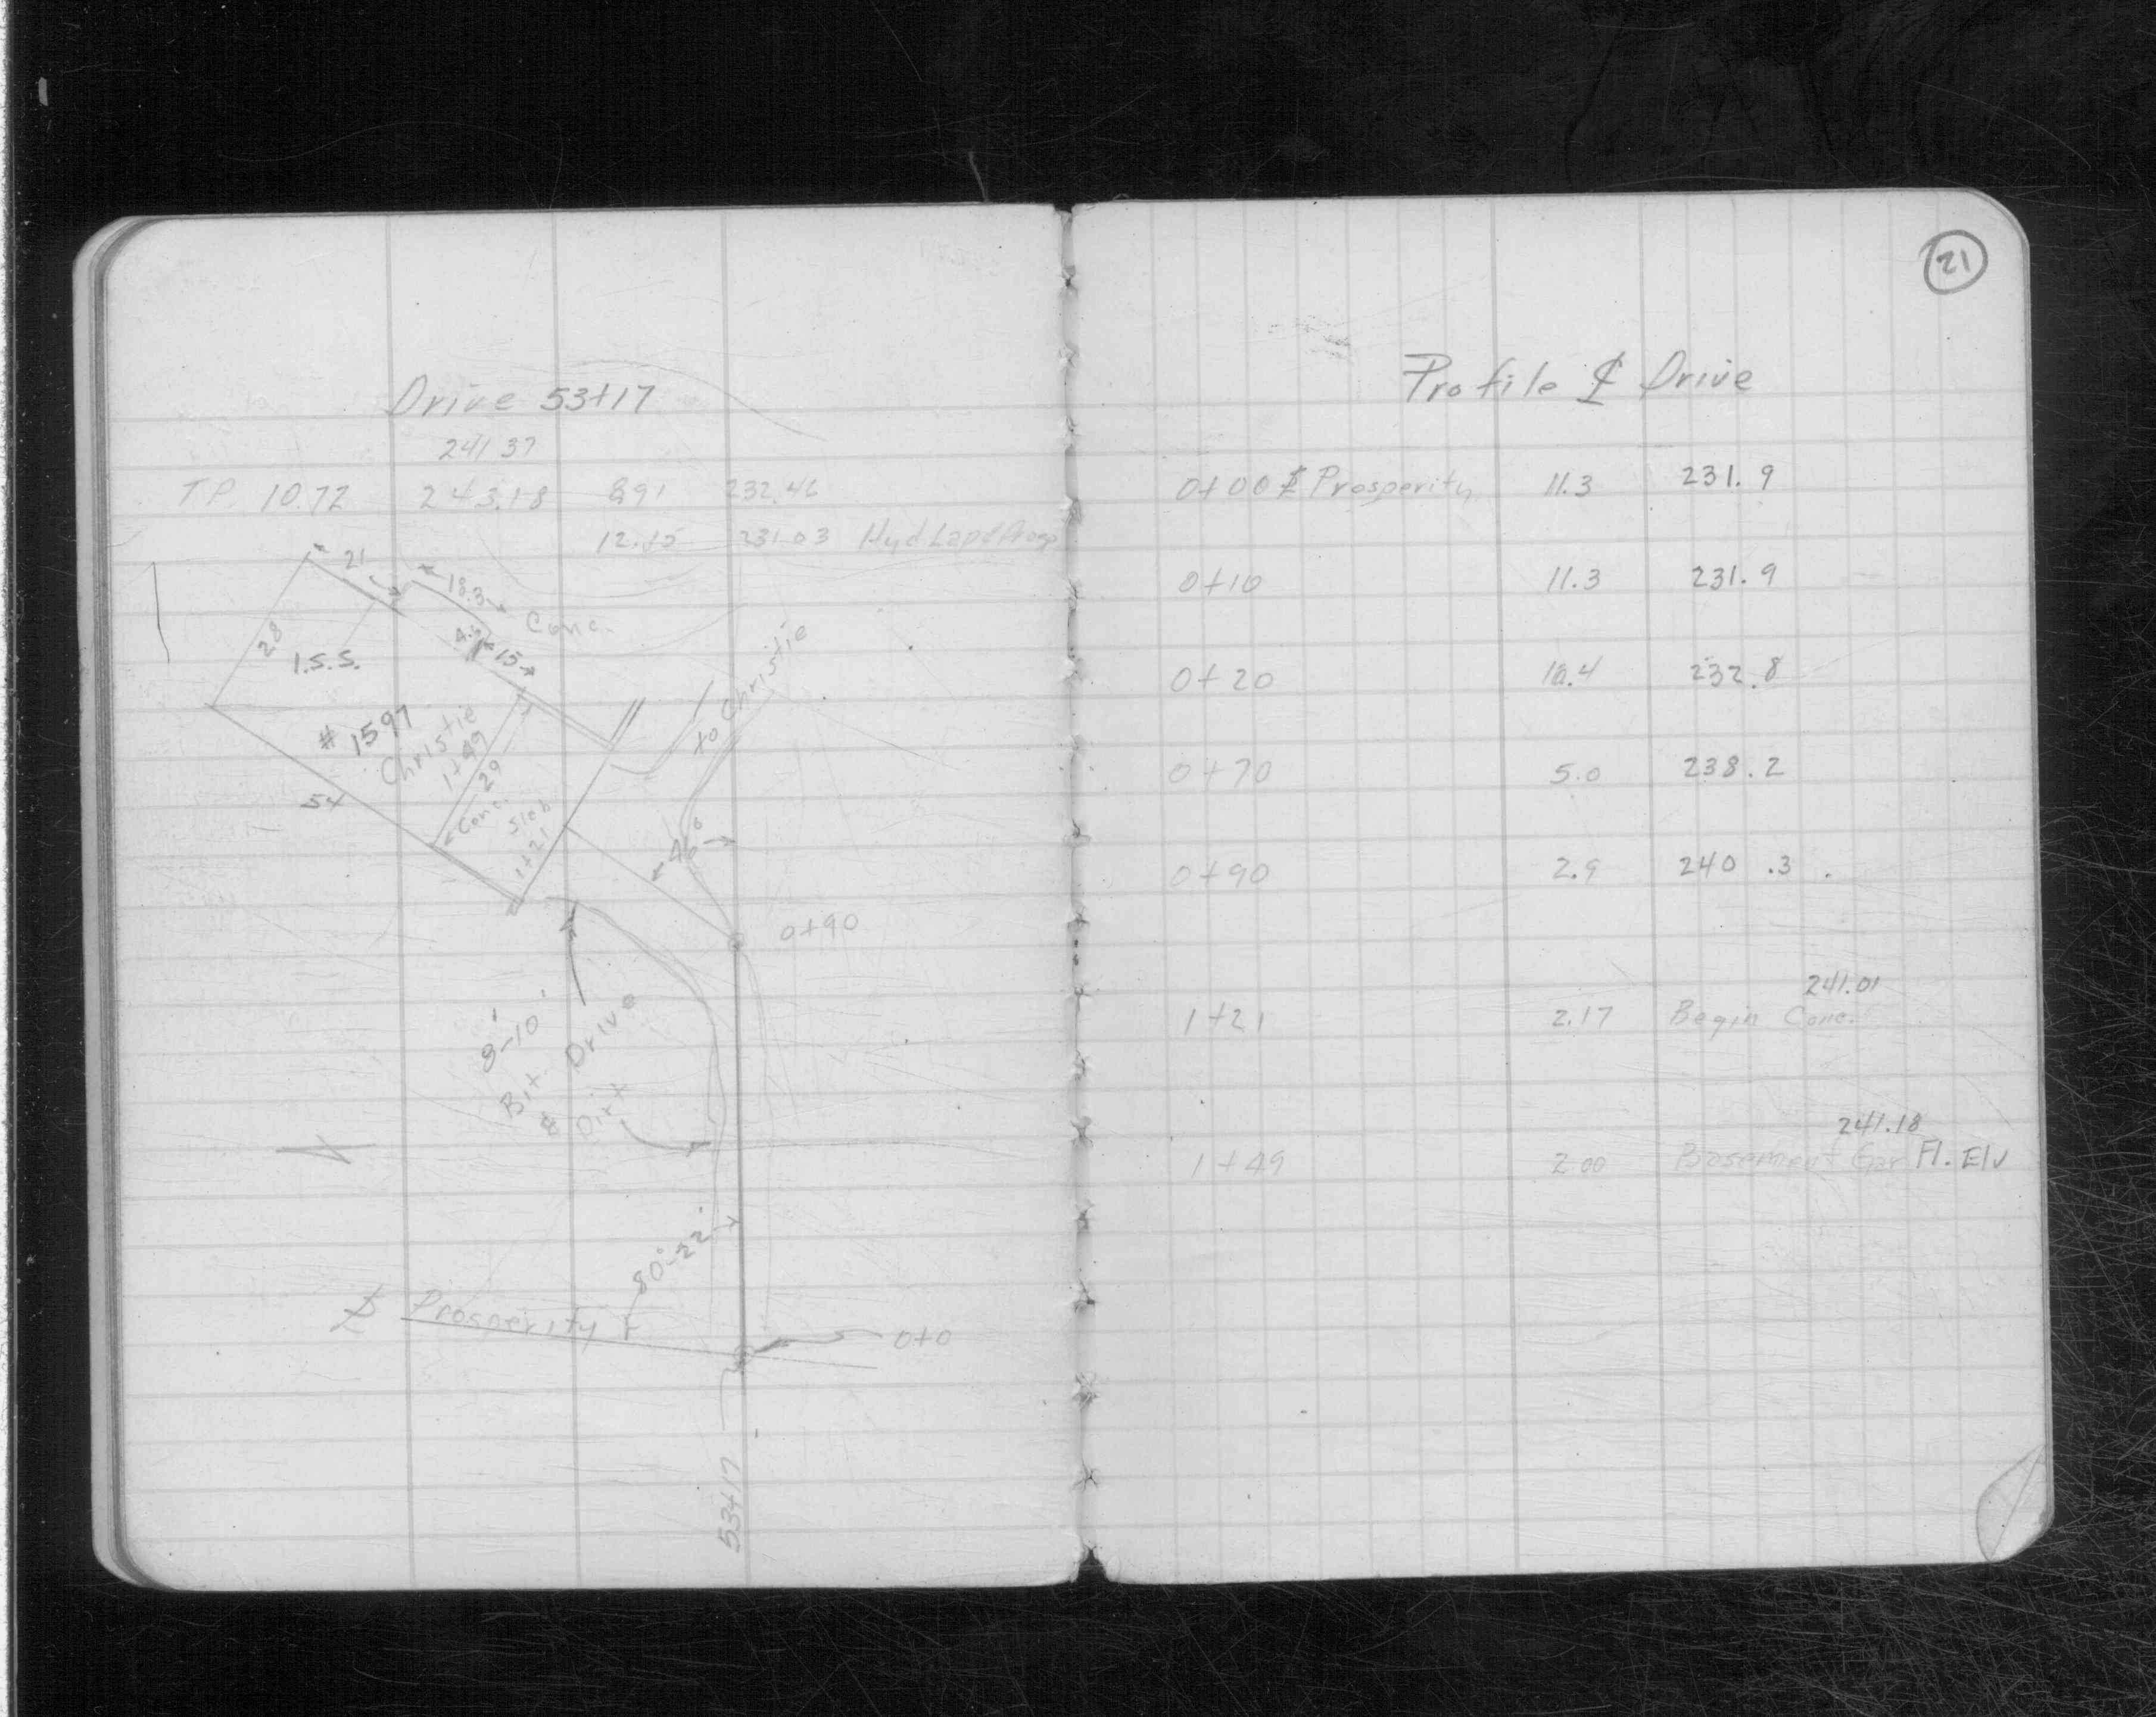 Drive 53+17
241.37
T.P. 10.72 243.18 8.91 232.46
12.15 231.03 Hyd.
21
18.3
Conc.
28
4.5
15
1.S.S.
to Christie
# 1597
Christie
1+49
29
54
Conc.
Slab
1+21
0+90
8'-10'
Bit. Drive
& Dirt
80°-22'
℄ Prosperity
0+0
53+17
21
Profile ℄ Drive
0+00 ℄ Prosperity 11.3 231.9
0+10 11.3 231.9
0+20 10.4 232.8
0+70 5.0 238.2
0+90 2.9 240.3
241.01
1+21 2.17 Begin Conc.
241.18
1+49 2.00 Basement Gar Fl. Elv